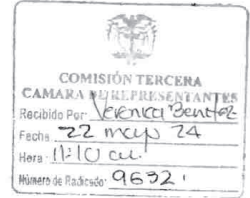 COMISIÓN TERCERA
CAMARA DE REPRESENTANTES
Recibido Por: Veronica Benitez
Fecha 22 mayo 24
Hora: 11:10 a.m.
Número de Radicado: 9632